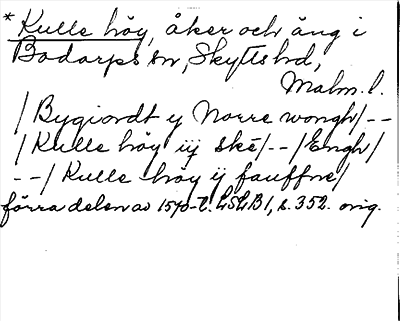 * Kulle höy, åker och äng i
Bodarps sn, Skytts hd,
Malm. l.
/ Bygiordt y Norre wongh / --
/ Kulle höy iij skē / -- / Engh /
-- / Kulle höy ij fauffne /
förra delen av 1570-t. LSLB 1, s. 352. orig.